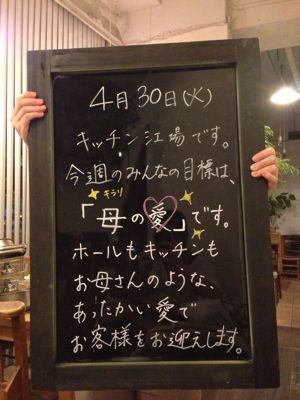 4月30日(火)
キッチン江場です。
今週のみんなの目標は、
キラリ
「母の愛」です。
ホールもキッチンも
お母さんのような、
あったかい愛で
お客様をお迎えします。